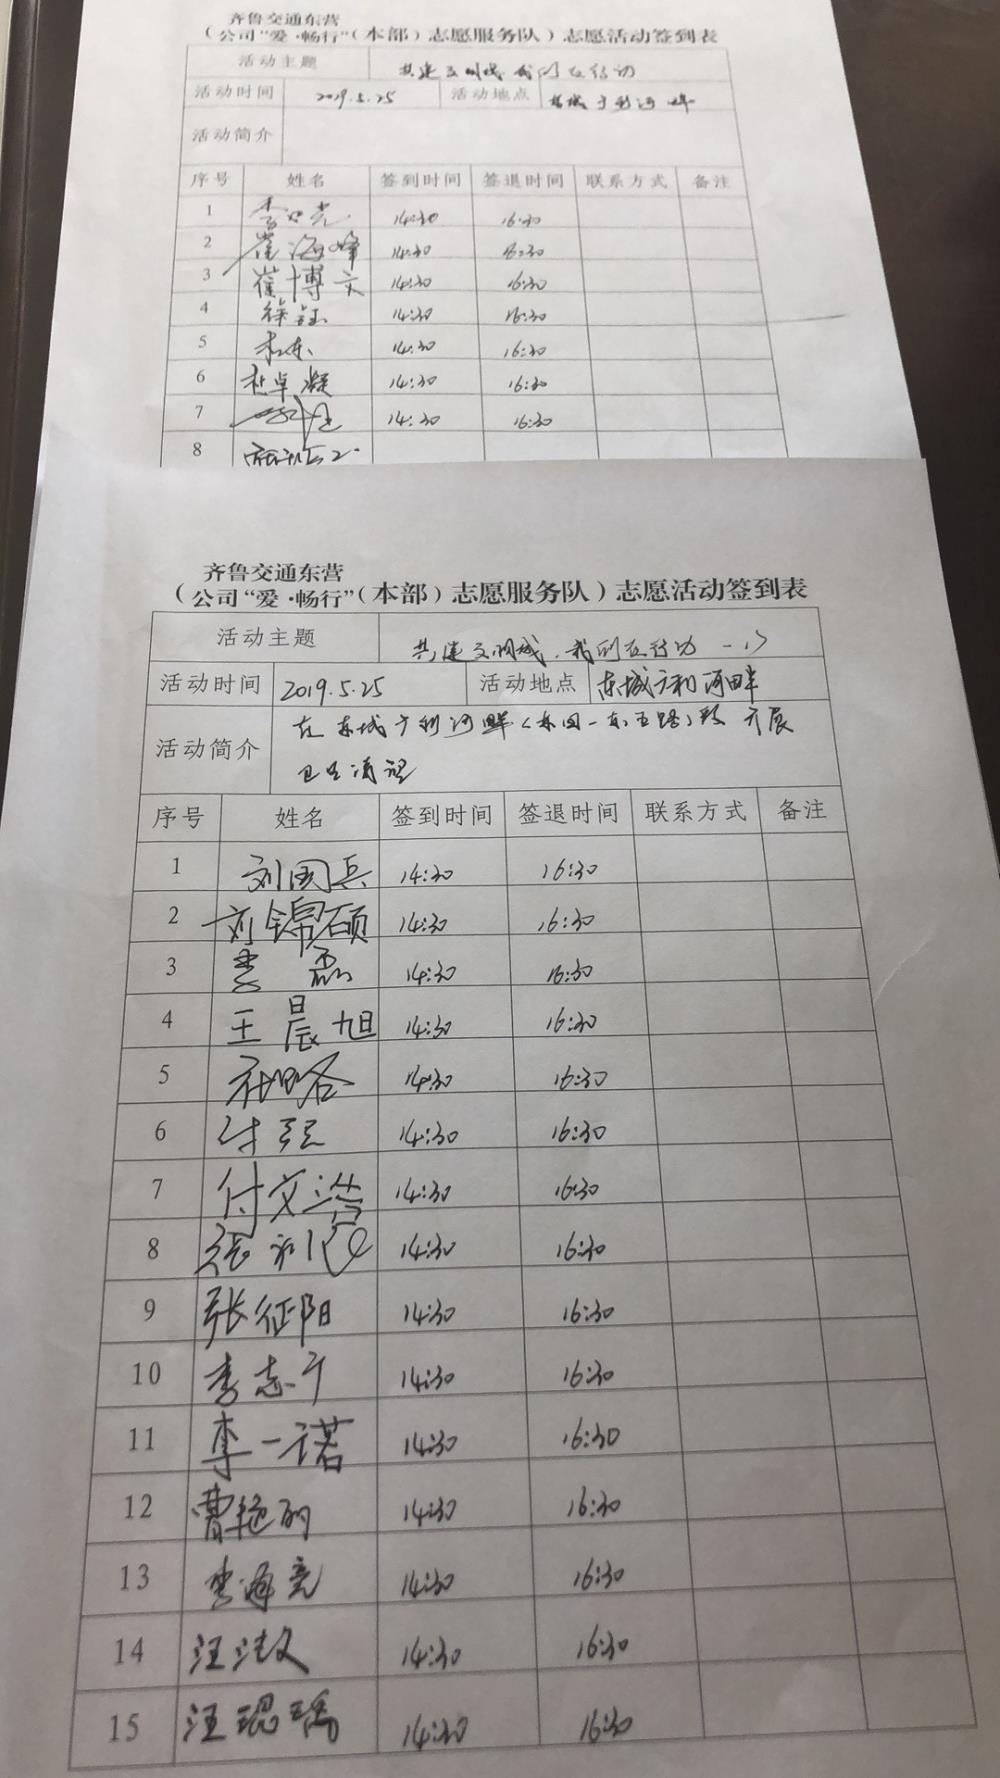 齐鲁交通东营
（公司“爱·畅行”（本部）志愿服务队）志愿活动签到表
活动主题 共建文明城 我们在行动
活动时间 2019.5.25 活动地点 东城广利河畔
活动简介
序号 姓名 签到时间 签退时间 联系方式 备注
1 14:30 16:30
2 崔海峰 14:30 16:30
3 崔博文 14:30 16:30
4 徐钰 14:30 16:30
5 14:30 16:30
6 杜卓凝 14:30 16:30
7 14:30 16:30
8
齐鲁交通东营
（公司“爱·畅行”（本部）志愿服务队）志愿活动签到表
活动主题 共建文明城，我们在行动
活动时间 2019.5.25 活动地点 东城广利河畔
活动简介 在东城广利河畔（东四-东五路）段开展
卫生清理
序号 姓名 签到时间 签退时间 联系方式 备注
1 刘国兵 14:30 16:30
2 刘锦硕 14:30 16:30
3 李磊 14:30 16:30
4 王晨旭 14:30 16:30
5 14:30 16:30
6 付强 14:30 16:30
7 付文浩 14:30 16:30
8 张 14:30 16:30
9 张征阳 14:30 16:30
10 李志广 14:30 16:30
11 李一诺 14:30 16:30
12 曹艳丽 14:30 16:30
13 李海亮 14:30 16:30
14 汪 14:30 16:30
15 汪琨瑀 14:30 16:30